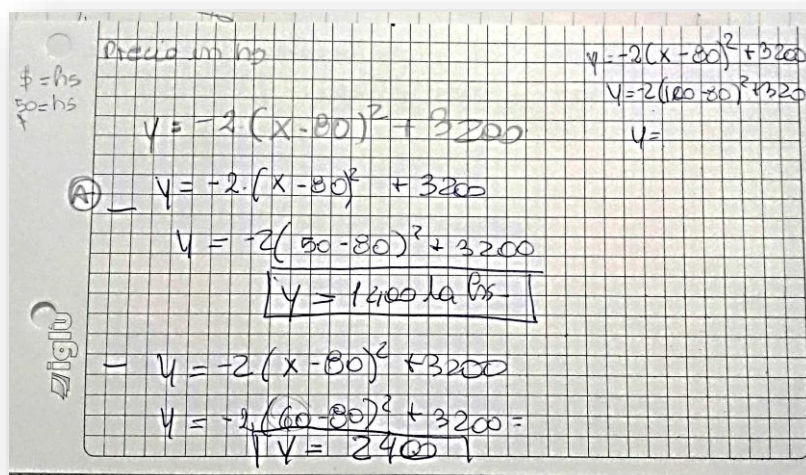 Precio in hs
$ = hs
50 = hs
y = -2·(x-80)² + 3200
A) – y = -2·(x-80)² + 3200
y = -2(50-80)² + 3200
y = 1400 la hs
– y = -2(x-80)² + 3200
y = -2(60-80)² + 3200 =
y = 2400
y = -2(x-80)² + 3200
y = -2(100-80)² + 320
y =